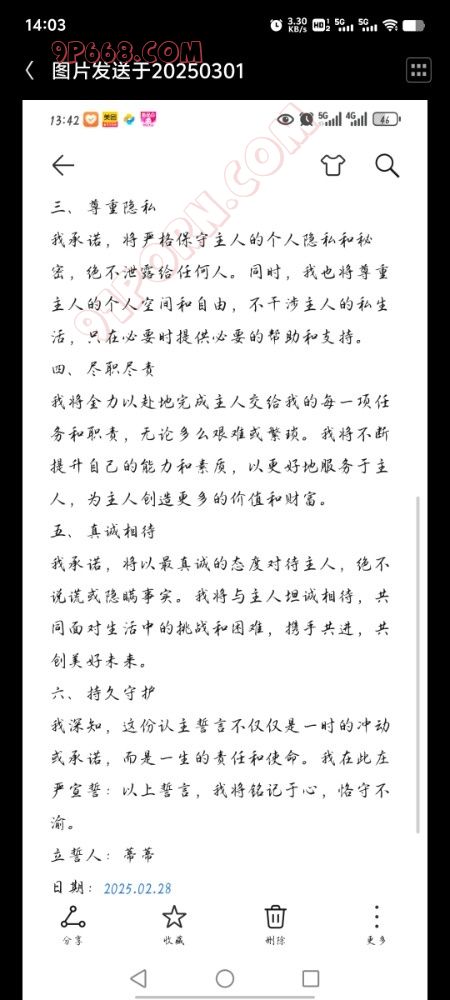 14:03
3.30
KB/s
HD 1
2
5G
5G
9P668.COM
图片发送于20250301
13:42
美团
5G
4G
46
91PORN.COM
三、尊重隐私
我承诺，将严格保守主人的个人隐私和秘
密，绝不泄露给任何人。同时，我也将尊重
主人的个人空间和自由，不干涉主人的私生
活，只在必要时提供必要的帮助和支持。
四、尽职尽责
我将全力以赴地完成主人交给我的每一项任
务和职责，无论多么艰难或繁琐。我将不断
提升自己的能力和素质，以更好地服务于主
人，为主人创造更多的价值和财富。
五、真诚相待
我承诺，将以最真诚的态度对待主人，绝不
说谎或隐瞒事实。我将与主人坦诚相待，共
同面对生活中的挑战和困难，携手共进，共
创美好未来。
六、持久守护
我深知，这份认主誓言不仅仅是一时的冲动
或承诺，而是一生的责任和使命。我在此庄
严宣誓：以上誓言，我将铭记于心，恪守不
渝。
立誓人：蒂蒂
日期：2025.02.28
分享
收藏
删除
更多